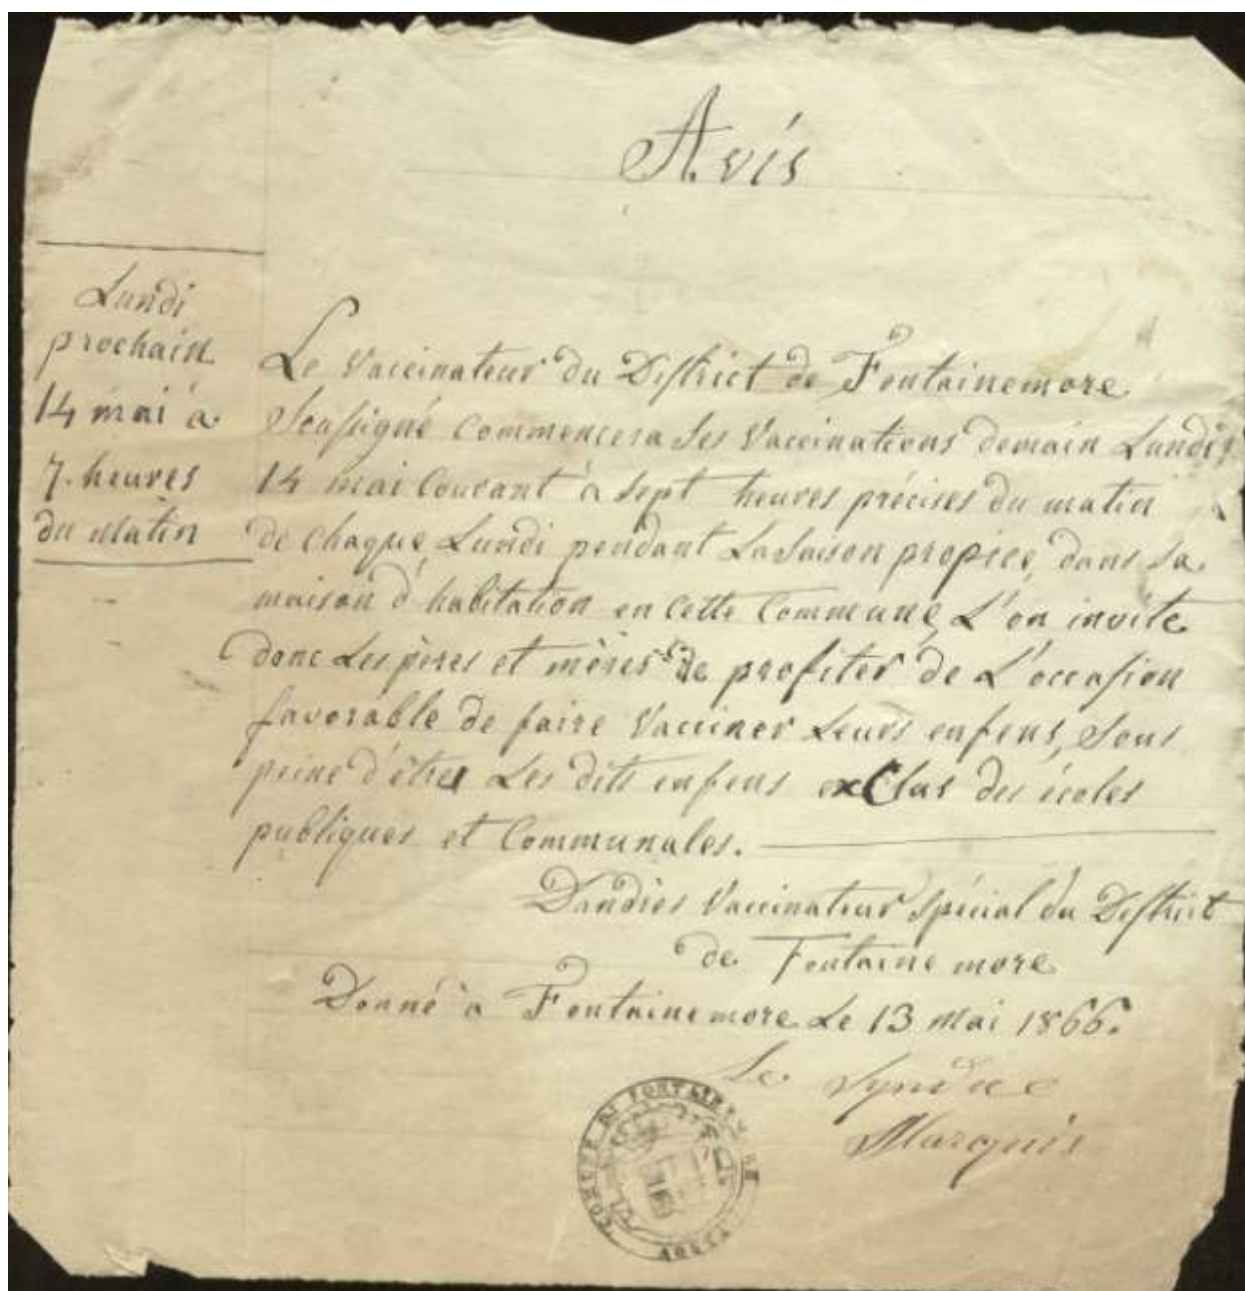 Avis
Lundi
prochain
14 mai à
7 heures
du matin
Le Vaccinateur du District de Fontainemore
Soussigné Commencera Ses Vaccinations demain Lundi
14 mai Courant à Sept heures précises du matin
de chaque Lundi pendant La Saison propice, dans Sa
maison d'habitation en Cette Commune, L'on invite
donc Les pères et mères de profiter de L'occasion
favorable de faire Vacciner Leurs enfens, Sous
peine d'être Les dits enfens exclus des écoles
publiques et Communales.
Dandres Vaccinateur Spécial du District
de Fontainemore
Donné à Fontainemore Le 13 Mai 1866.
Le Syndic
Marquis
COMUNE DI FONTAINEMORE
AOSTA